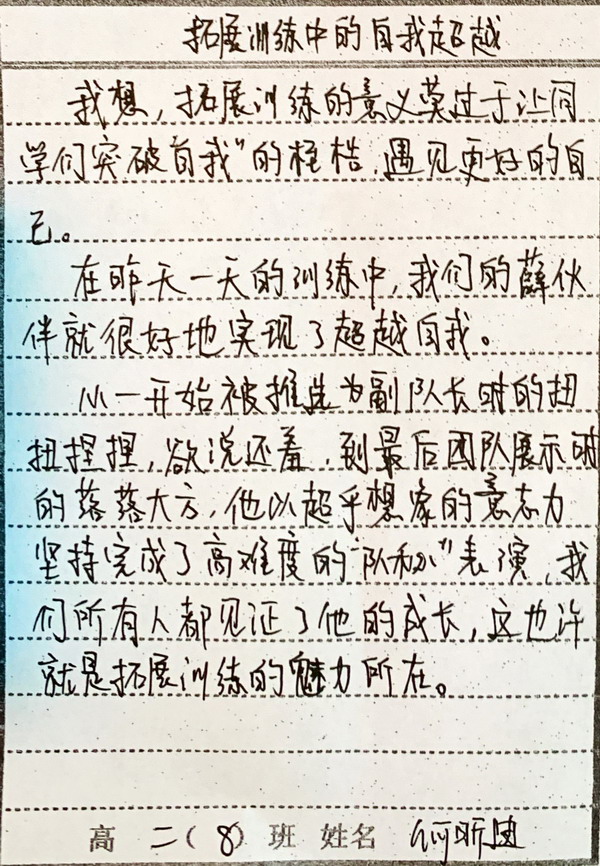 拓展训练中的自我超越
我想，拓展训练的意义莫过于让同
学们突破"自我"的桎梏，遇见更好的自
己。
在昨天一天的训练中，我们的薛伙
伴就很好地实现了超越自我。
从一开始被推选为副队长时的扭
扭捏捏，欲说还羞，到最后团队展示时
的落落大方，他以超乎想象的意志力
坚持完成了高难度的"队秘"表演，我
们所有人都见证了他的成长，这也许
就是拓展训练的魅力所在。
高 二（8）班 姓名 何昕